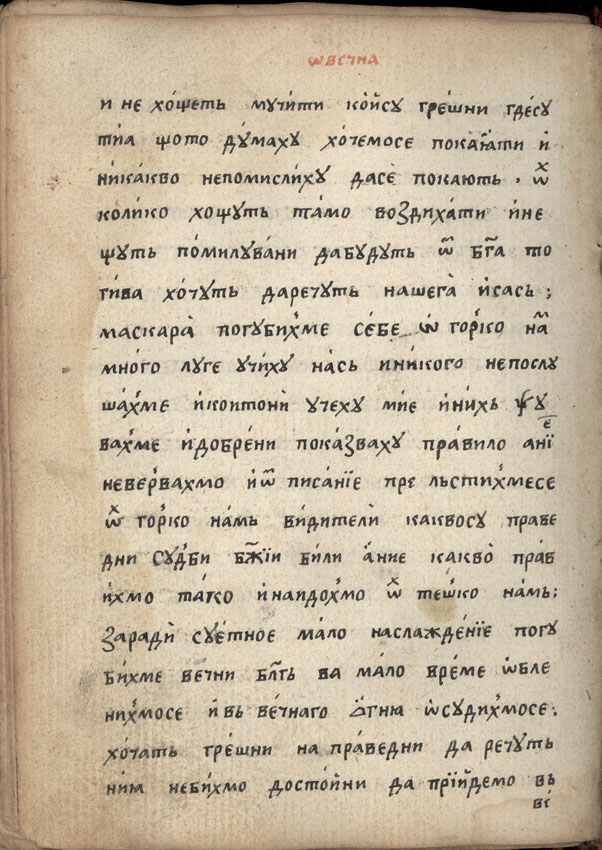 ѡвечна
и не хо́щеть мꙋчи́ти ко́йсꙋ гре́шни где́сꙋ
ті́а щото дꙋ́махꙋ хо́чемосе покаꙗ́ти и҆
ни́какво непоми́слихꙋ да́се пока́ють · ѽ
коли́ко хо́щꙋть та́мо воꙁдиха́ти и҆не
щꙋть по́милꙋва́ни дабꙋ́дꙋть ѿ бг҃а то
гива хо́тꙋть даре́тꙋть на́шега̀ и҆са́сь ;
ма́скара̀ погꙋби́хме се́бе ѽ го́рко на̑
мно́го лꙋге ᲂу҆чи́хꙋ на́сь и҆ни́кого непослꙋ
ша́хме и҆коитони̇̀ ᲂу҆че́хꙋ ми́е и҆ни́хь ѱꙋ
ва́хме и҆до́бре́ни пока́ꙁвахꙋ пра́вило ані̇ е
неве́рвахмо и҆ѿ писа́нїе пре льсти́хмесе
ѽ го́рко на́мь ви́дители̇̀ какво́сꙋ пра́ве
дни сꙋ́дби бж҃їи би́ли а҆́ние какво̀ пра́в
и҆́хмо та́ко и҆наидо́хмо ѽ те́шко на́мь ;
ꙁаради̇̀ сꙋе́тное ма́ло наслажде́нїе погꙋ
би́хме ве́чни бл҃гть ва ма́ло вре́ме ѡ҆бле
ни́хмосе и҆вь ве́чнаго ѻ҆́гню ѡ҆сꙋди́хмосе ;
хо́тать гре́шни на пра́ведни да ре́тꙋть
ни́ꙗ неби́хмо досто́йни да прїи́демо вь
ве́